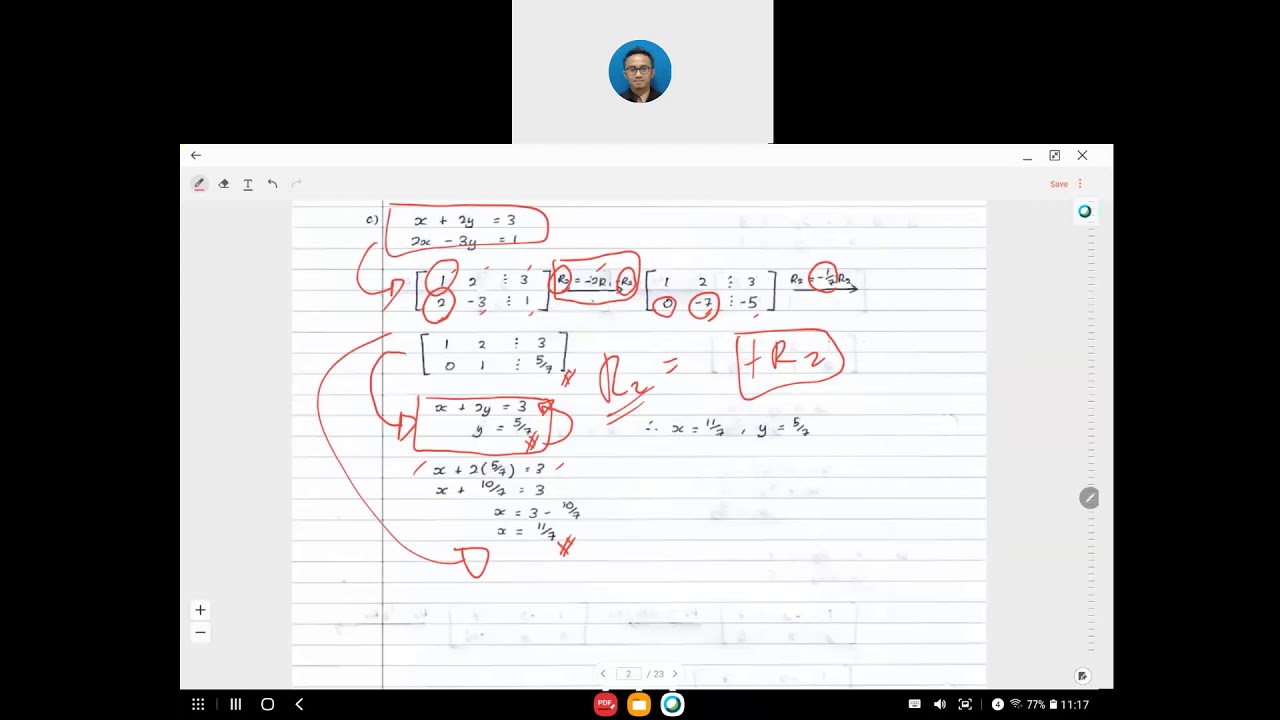 Save
c) x + 2y = 3
2x - 3y = 1
[ 1 2 ⋮ 3 ] R₂ = -2R₁+R₂ [ 1 2 ⋮ 3 ] R₂ = -1/7R₂
[ 2 -3 ⋮ 1 ] [ 0 -7 ⋮ -5 ]
[ 1 2 ⋮ 3 ]
[ 0 1 ⋮ 5/7 ]
R₂ = +R₂
x + 2y = 3
y = 5/7
∴ x = 11/7 , y = 5/7
x + 2(5/7) = 3
x + 10/7 = 3
x = 3 - 10/7
x = 11/7
2 / 23
PDF
4 77% 11:17